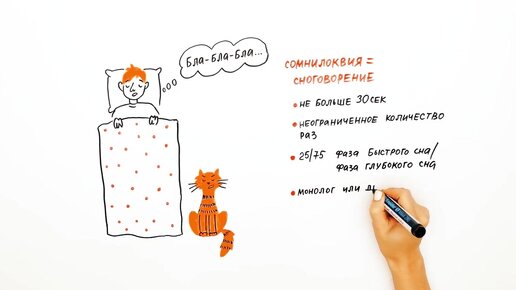 Бла-бла-бла...
СОМНИЛОКВИЯ =
СНОГОВОРЕНИЕ
• НЕ БОЛЬШЕ 30 СЕК
• НЕОГРАНИЧЕННОЕ КОЛИЧЕСТВО
РАЗ
• 25/75 ФАЗА БЫСТРОГО СНА/
ФАЗА ГЛУБОКОГО СНА
• МОНОЛОГ ИЛИ